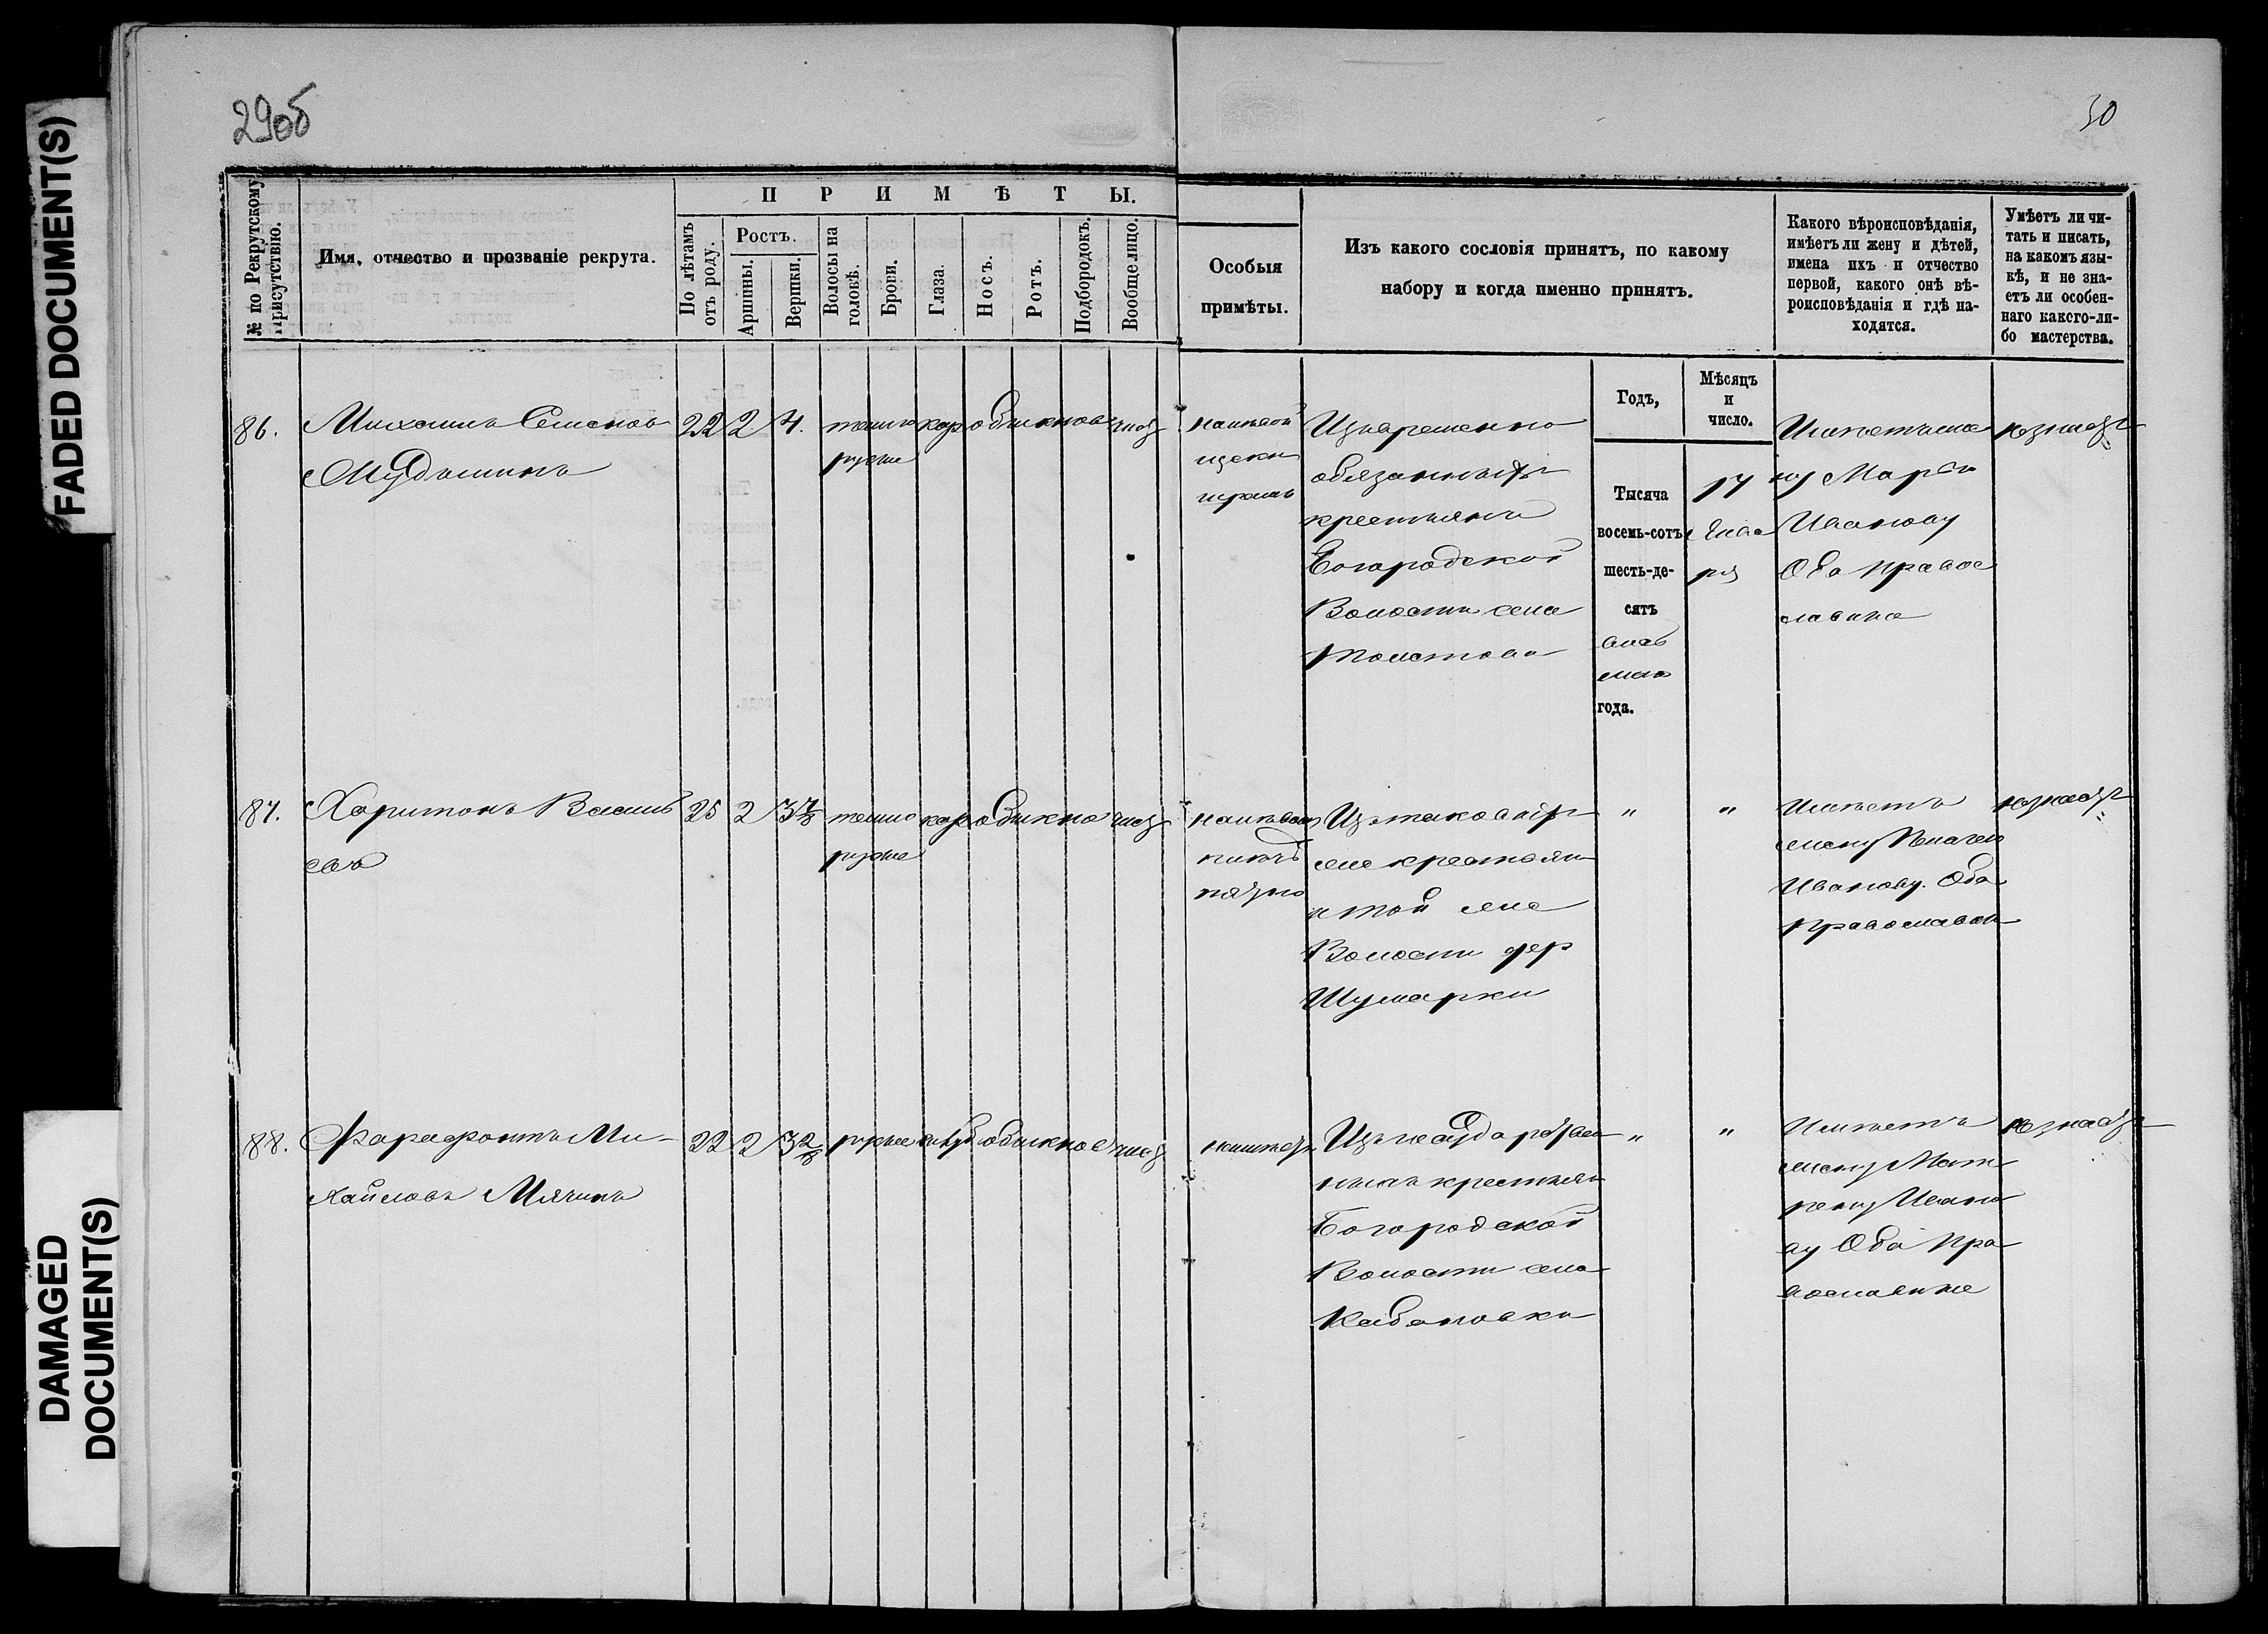 FADED DOCUMENT(S)
DAMAGED
DOCUMENT(S)
29об
30
№ по Рекрутскому
присутствію.
Имя, отчество и прозваніе рекрута.
ПРИМѢТЫ.
По лѣтамъ
отъ роду.
Ростъ.
Аршины.
Вершки.
Волосы на
головѣ.
Брови.
Глаза.
Носъ.
Ротъ.
Подбородокъ.
Вообще лицо.
Особыя
примѣты.
Изъ какого сословія принятъ, по какому
набору и когда именно принятъ.
Какого вѣроисповѣданія,
имѣетъ ли жену и дѣтей,
имена ихъ и отчество
первой, какого онѣ вѣ-
роисповѣданія и гдѣ на-
ходятся.
Умѣетъ ли чи-
тать и писать,
на какомъ язы-
кѣ, и не зна-
етъ ли особен-
наго какого-ли-
бо мастерства.
Годъ,
Мѣсяцъ
и
число.
86.
Михаилъ Семенов
22 2 4. темно кар обыкнов чис
русые
на лѣвой
щеки
шрамъ
Из временно
обязанныхъ
крестьянъ
Богородской
Волости села
Толстова
Тысяча
восемь-сотъ
шесть-де-
сятъ
восьмаго
года.
17
Янва
ря
Имѣетъ же
ну Марью
Иванову
Оба правос
лавные
незнаетъ
87.
Харитонъ Василь
евъ
25 2 3 7/8 темно кар обыкно чис
русые
Изъ таковыхъ
же крестьян
и той же
Волости дер
Шумарки
" "
Имѣетъ
жену
Иванову. Оба
православн
незнаетъ
88.
Фарафонтъ Ми-
хайловъ Мячинъ
22 2 3 2/8 русые обыкнов чис
неимѣетъ
Изъ государствен
ныхъ крестьян
Богородской
Волости села
Кабановки
" "
Имѣетъ
жену Мат
рену Ивано
ву Оба пра
вославные
незнаетъ